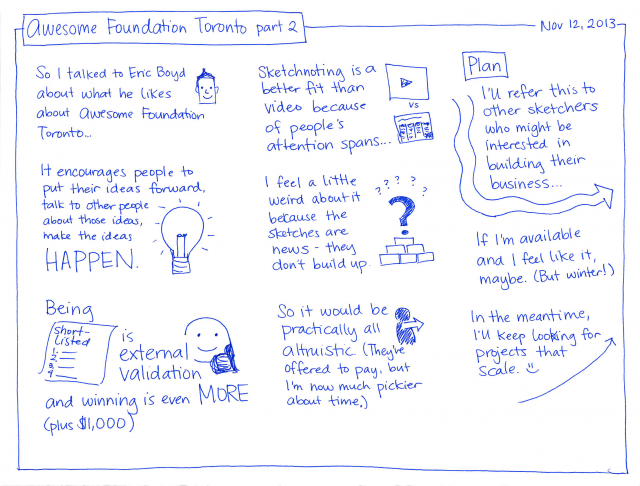 Awesome Foundation Toronto part 2
Nov 12, 2013
So I talked to Eric Boyd
about what he likes
about Awesome Foundation
Toronto...
It encourages people to
put their ideas forward,
talk to other people
about those ideas,
make the ideas
HAPPEN.
Being
short-
listed
1.
2.
3.
4.
is
external
validation
and winning is even MORE
(plus $1,000)
Sketchnoting is a
better fit than
video because
of people's
attention spans...
vs
I feel a little
weird about it
because the
sketches are
news - they
don't build up.
? ? ? ? ?
?
So it would be
practically all
altruistic (They've
offered to pay, but
I'm now much pickier
about time.)
Plan
I'll refer this to
other sketchers
who might be
interested in
building their
business...
If I'm available
and I feel like it,
maybe. (But winter!)
In the meantime,
I'll keep looking for
projects that
scale.